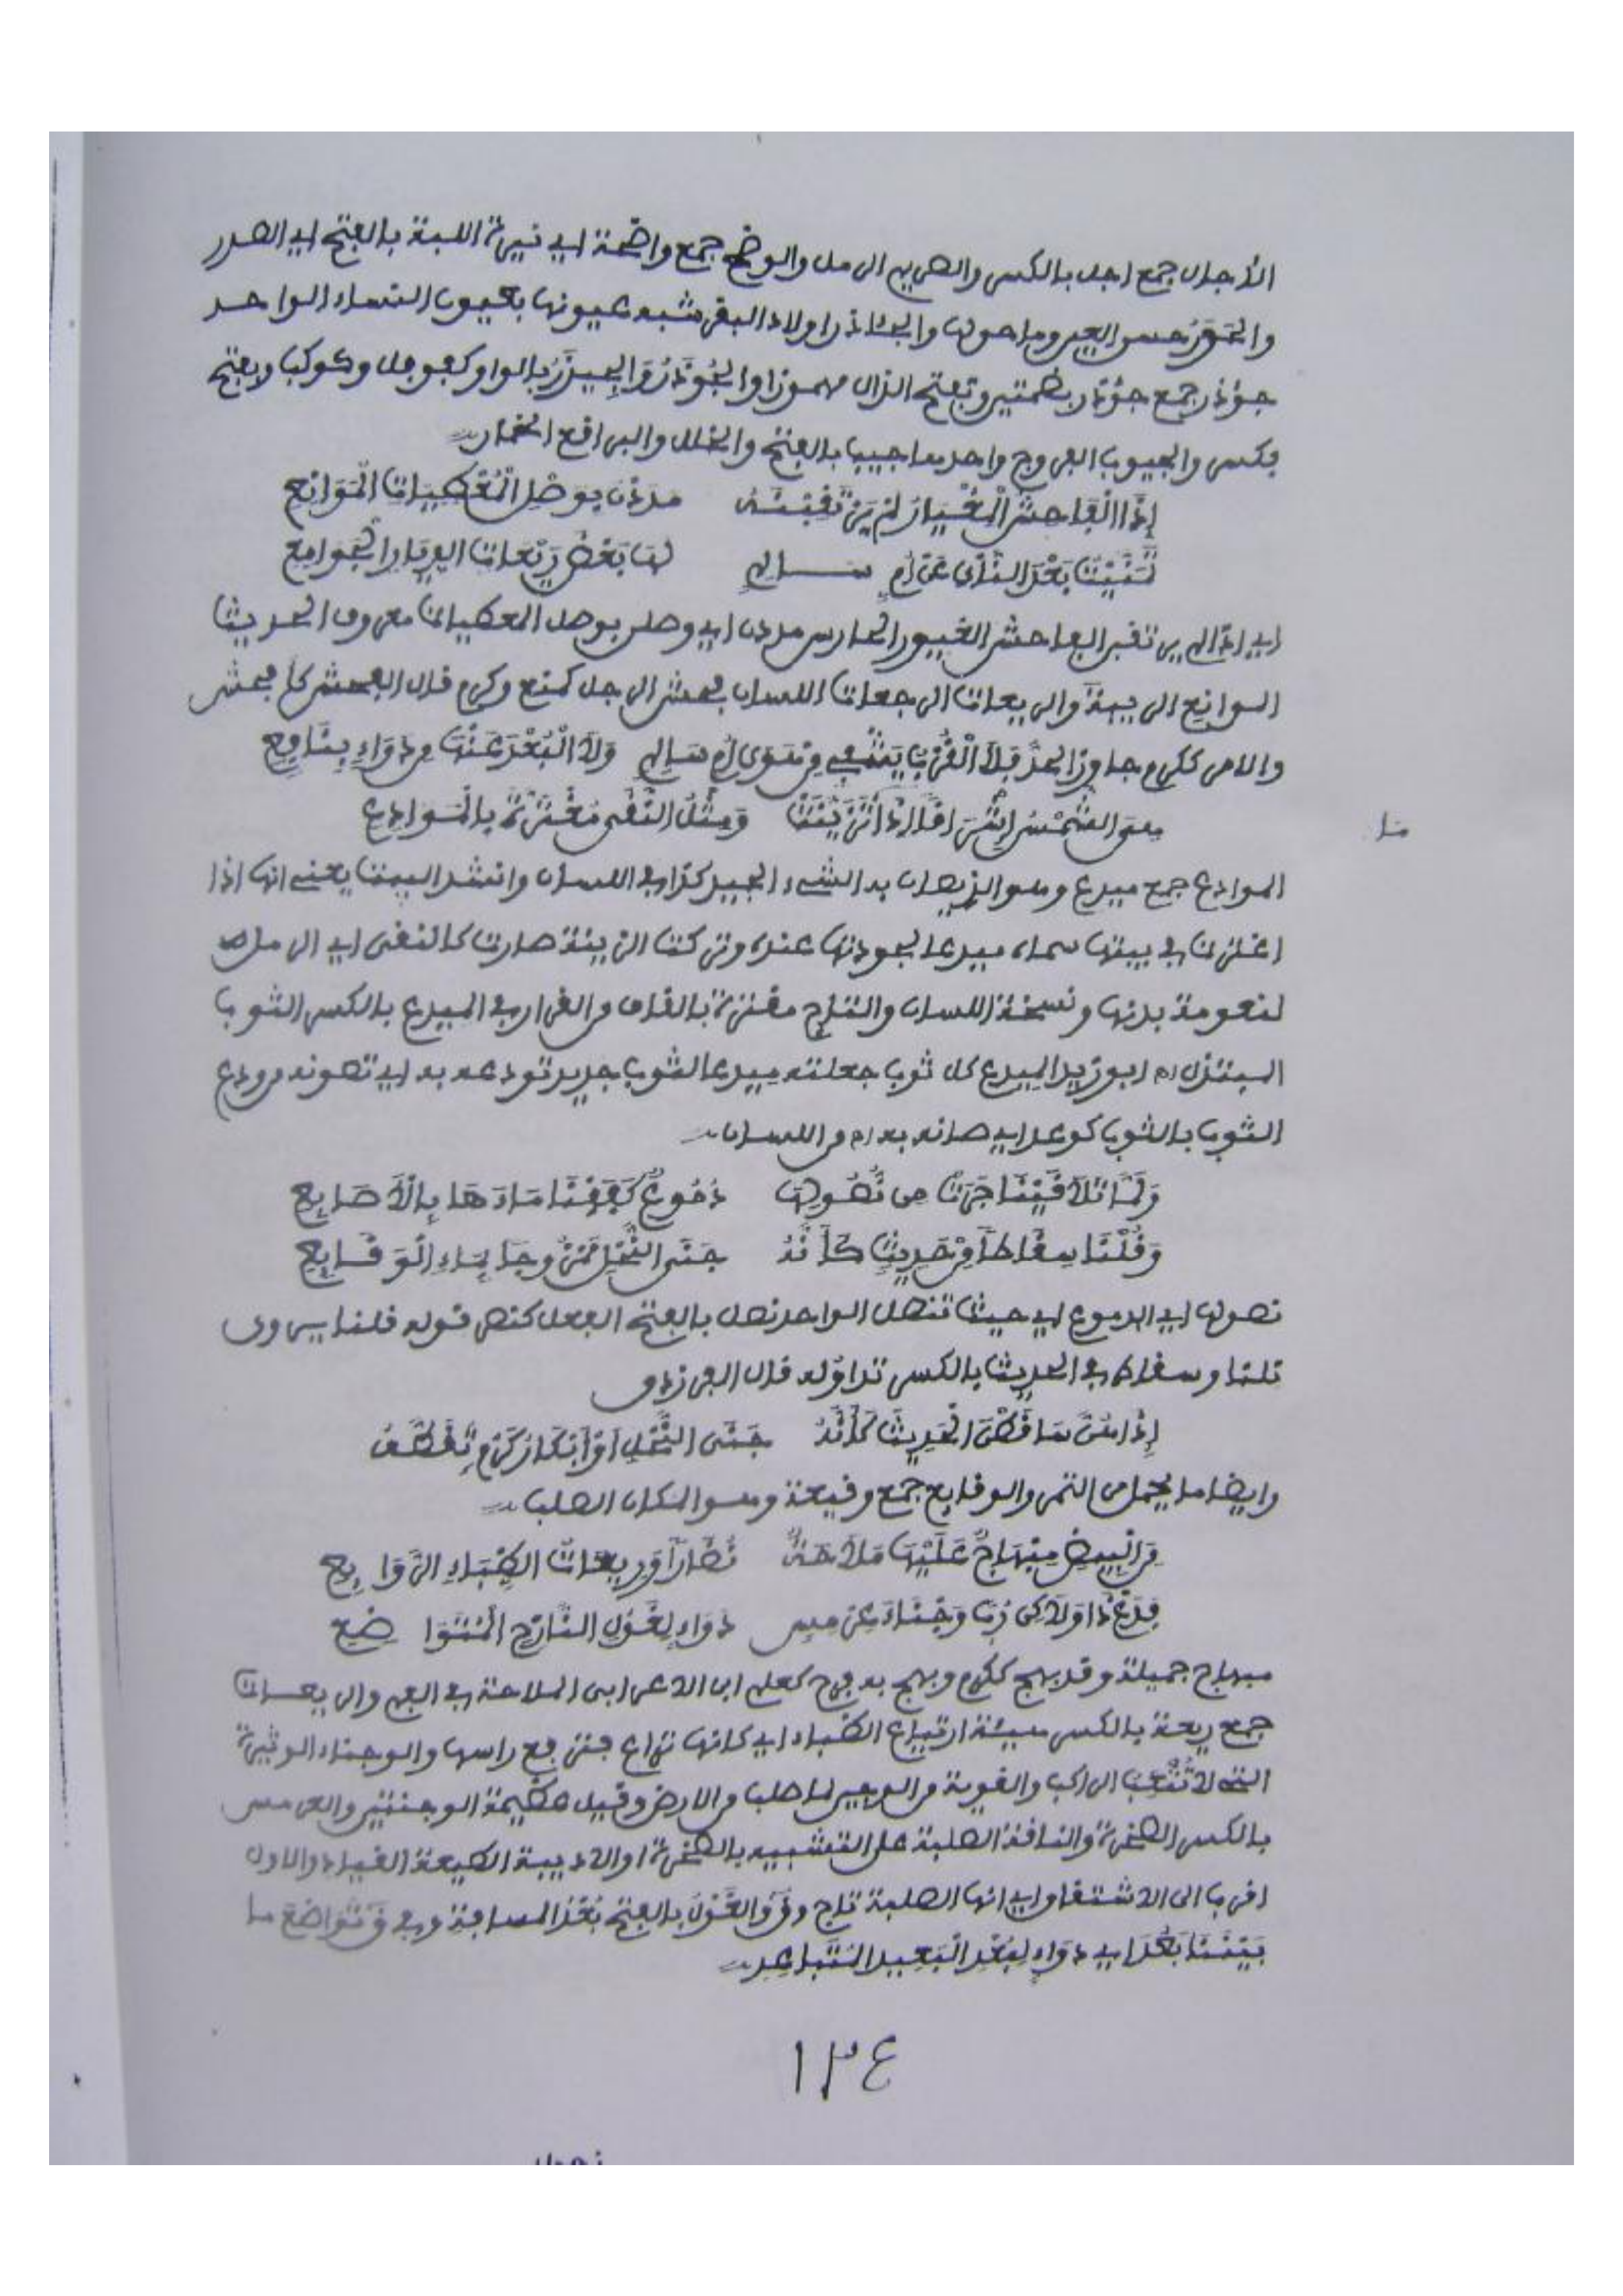 الأجال جمع اجل بالكسر والصريم الرمل والوضح جمع واضحة اي نيرة اللبة بالفتح اي الصدر
والحور حسن العين وما حولها والجئاذر اولاد البقر شبه عيونها بعيون النساء الواحد
جؤذر جمع جؤذر بضمتين وتفتح الذال مهموزا والجوذر والجيذر بالواو كفوفل وكوكب وبفتح
فكسر والجيوب الفروج واحدها جيب بالفتح والخلل والبراقع الخمار
إذا الفاحش المغيار لم يرتقبنه مددن بوصل المعطيات الموانع
تمنيت بعد النأي عن أم سالم لها بعض ريعات الديار الجوامع
اي اذا لم يرتقبن الفاحش الغيور الحارس مددن اي وصلن بوصل المعطيات معروف الحديث
الموانع الريبة والريعات الرجعات اللسان فحش الرجل كمنع وكرم قال الفحش كل فحش
والامر ككرم جاوز الحد فلا القرب يشفي من هوى أم سالم ولا البعد عنها من دواء بنافع
من الشمس إشراقا إذا تزينت ومثل النقى مغترة بالموادع
ما
الموادع جمع ميدع وهو الذي يصان به الشيء الجيد كذا في اللسان وانشد البيت يعني انها اذا
اغترت في بيتها سماه ميدعا لجودتها عنده وتركت الزينة صارت كالنقى اي الرمل
لنعومة بدنها ونسخة اللسان والتاج مغترة بالقاف من الفرار في الميدع بالكسر الثوب
المبتذل اه ابو زيد الميدع كل ثوب جعلته ميدعا لثوب جديد تودعه به اي تصونه من ودع
الثوب بالثوب كوعد اي صانه به اه من اللسان
ولما تلاقينا جرت من نصولها دموع كففنا ماءها بالأصابع
وقلنا سقاطا من حديث كأنه جنى النحل ممزوجا بماء الوقايع
نصولها اي الدموع اي حيث تنصل الواحد نصل بالفتح الفعل كنصر قوله قلنا يروى
نلنا وسقاط في الحديث بالكسر تداوله قال الفرزدق
إذا هن ساقطن الحديث كأنه جنى النحل أو أبكار كرم تقطف
وايضا ما يحمل من التمر والوقايع جمع وقيعة وهو المكان الصلب
من البيض مبهاج عليها ملاحة نضارا وريعات الظباء الروايع
فدع ذا ولكن رب وجناء عرمس دواء لغول النازح المتواضع
مبهاج جميلة وقد بهج ككرم وبهج به فرح كعلم ابن الاعرابي الملاحة في الفم والريعات
جمع ريعة بالكسر هيئة ارتياع الظباء اي كانها تراع فترفع راسها والوجناء الوثيرة
التي لا تتعب الراكب والقوية من الوجين لما صلب من الارض وقيل عظيمة الوجنتين والعرمس
بالكسر الصخرة والناقة الصلبة على التشبيه بالصخرة او الاديبة الطيعة القياد والاول
اقرب الى الاشتقاق اي انها الصلبة تاج وق والغول بالفتح بعد المسافة وفي ق تواضع ما
بيننا بعد اي دواء لبعد البعيد المتباعد
١٣٤